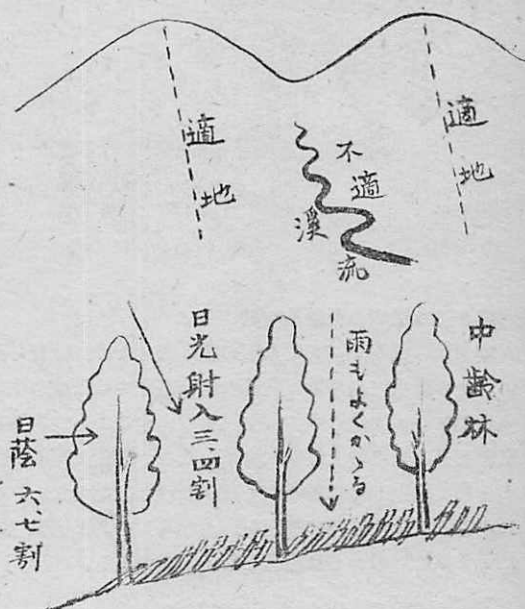 適地
不適
溪流
適地
中齢林
雨もよくかゝる
日光射入三、四割
日蔭 六、七割